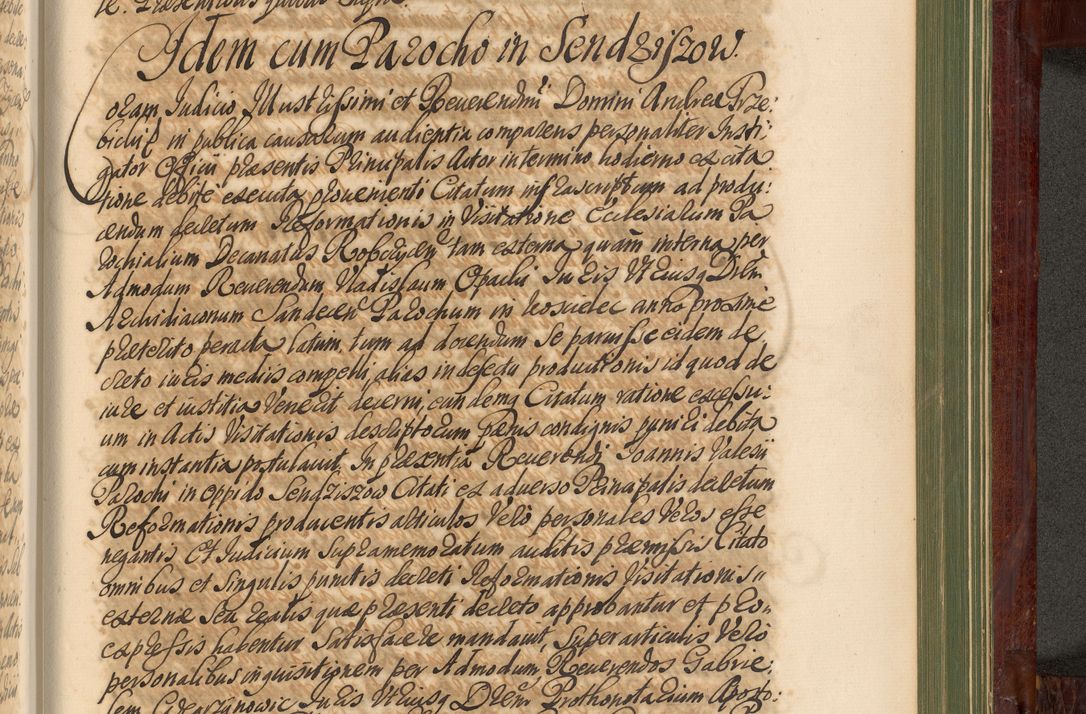 Idem cum Parocho in Sendziszow.
Coram Iudicio Illustrissimi et Reuerendmi Domini Andreæ Trze:
bicki in publica causarum audientia comparens personaliter Insti:
gator Officii præsentis Principalis Actor in termino hodierno ex cita
tione debite executa prouenienti Citatum infrascriptum ad produ:
cendum decretum Reformationis in Visitatione Ecclesiarum Pa
rochialium Decanatus Robczycen tam externa quam interna per
Admodum Reuerendum Vladislaum Opacki Iuris Vtriusq Drem
Archidiaconum Sandecen Parochum in anno proxime
præterito peracta latum, tum ad docendum se paruisse eidem de
creto iuris mediis compelli, alias in defectu productionis id quod de
iure et iustitia venerit decerni, eundemq Citatum ratione excessu:
um in Actis Visitationis descriptorum pænis condignis puniri debita
cum instantia postulauit. In præsentia Reuerendi Ioannis Valesii
Parochi in oppido Sendziszow Citati ex aduerso Principalis decretum
Reformationis producentis articulos vero personales veros esse
negantis Et Iudicium supramemoratum auditis præmissis Citato
omnibus et singulis punctis decreti Reformationis Visitationis
externæ seu realis quæ præsenti decreto approbantur et pro
expressis habentur satisfacere mandauit, super articulis vero
personalibus inquisitionem per Admodum Reuerendos Gabrie
lem Iuris Vtriusq Drem Prothonotarium Aposto: